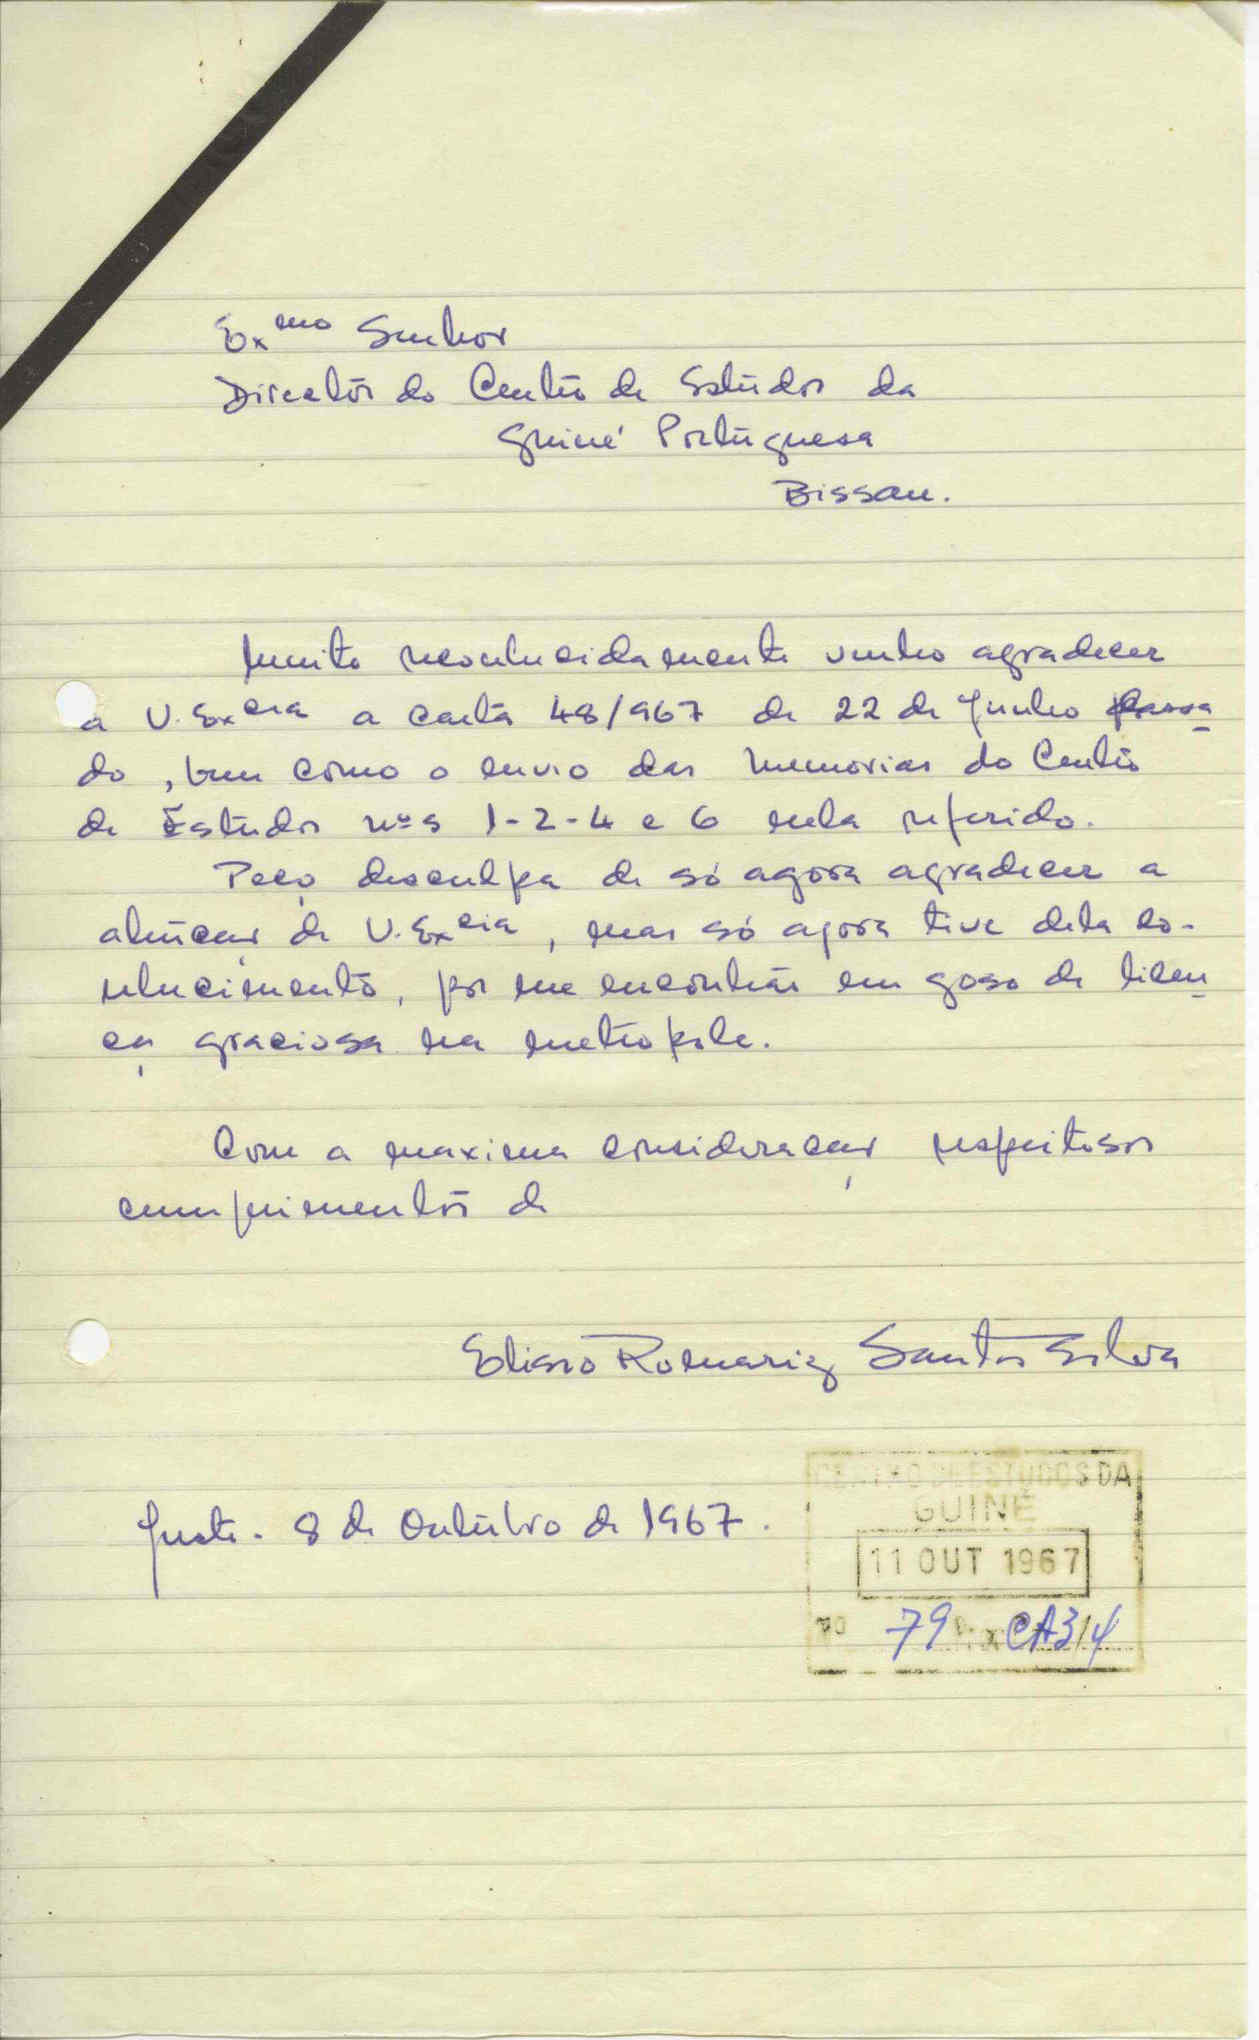 Exmo Senhor
Director do Centro de Estudos da
Guiné Portuguesa
Bissau.
Muito reconhecidamente venho agradecer
a V. Excia a carta 48/967 de 22 de Junho passa
do, bem como o envio das Memorias do Centro
de Estudos nos 1-2-4 e 6 nela referido.
Peço desculpa de só agora agradecer a
atençaõ de V. Excia, mas só agora tive dela co-
nhecimento, por me encontrar em goso de licen
ça graciosa na metropole.
Com a maxima consideraçaõ respeitosos
cumprimentos de
Romariz Santos Silva
8 de Outubro de 1967.
CENTRO DE ESTUDOS DA
GUINÉ
11 OUT 1967
79 CA3/4